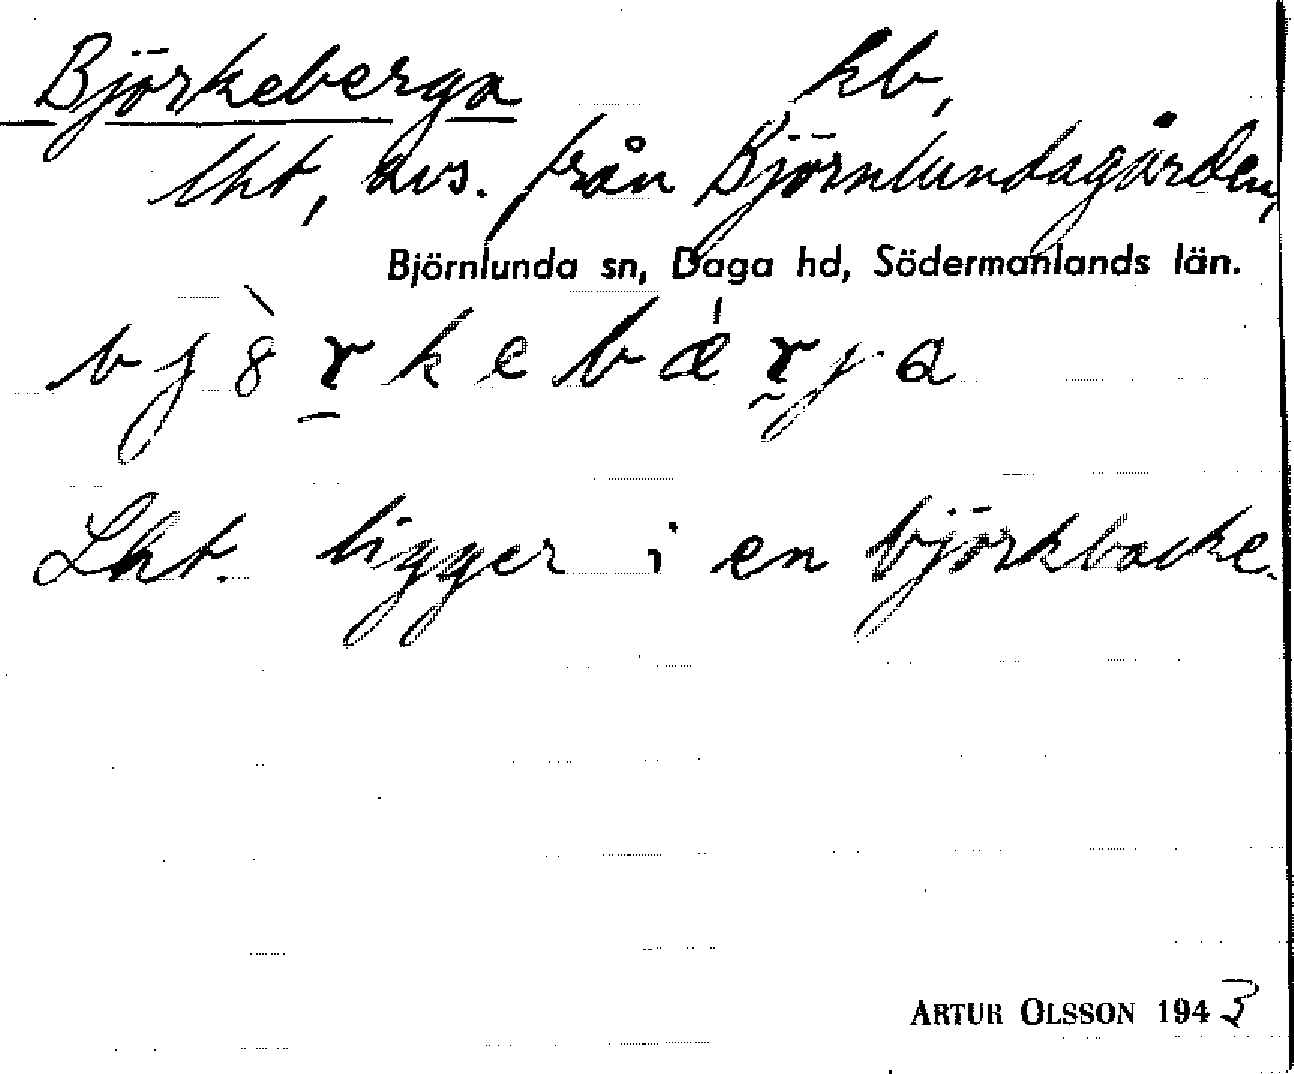 Björkeberga kb,
lht, avs. från Björnlundagården,
Björnlunda sn, Daga hd, Södermanlands län.
bjö̀rkebǽrja
Lht. ligger i en björkbacke.
ARTUR OLSSON 1943